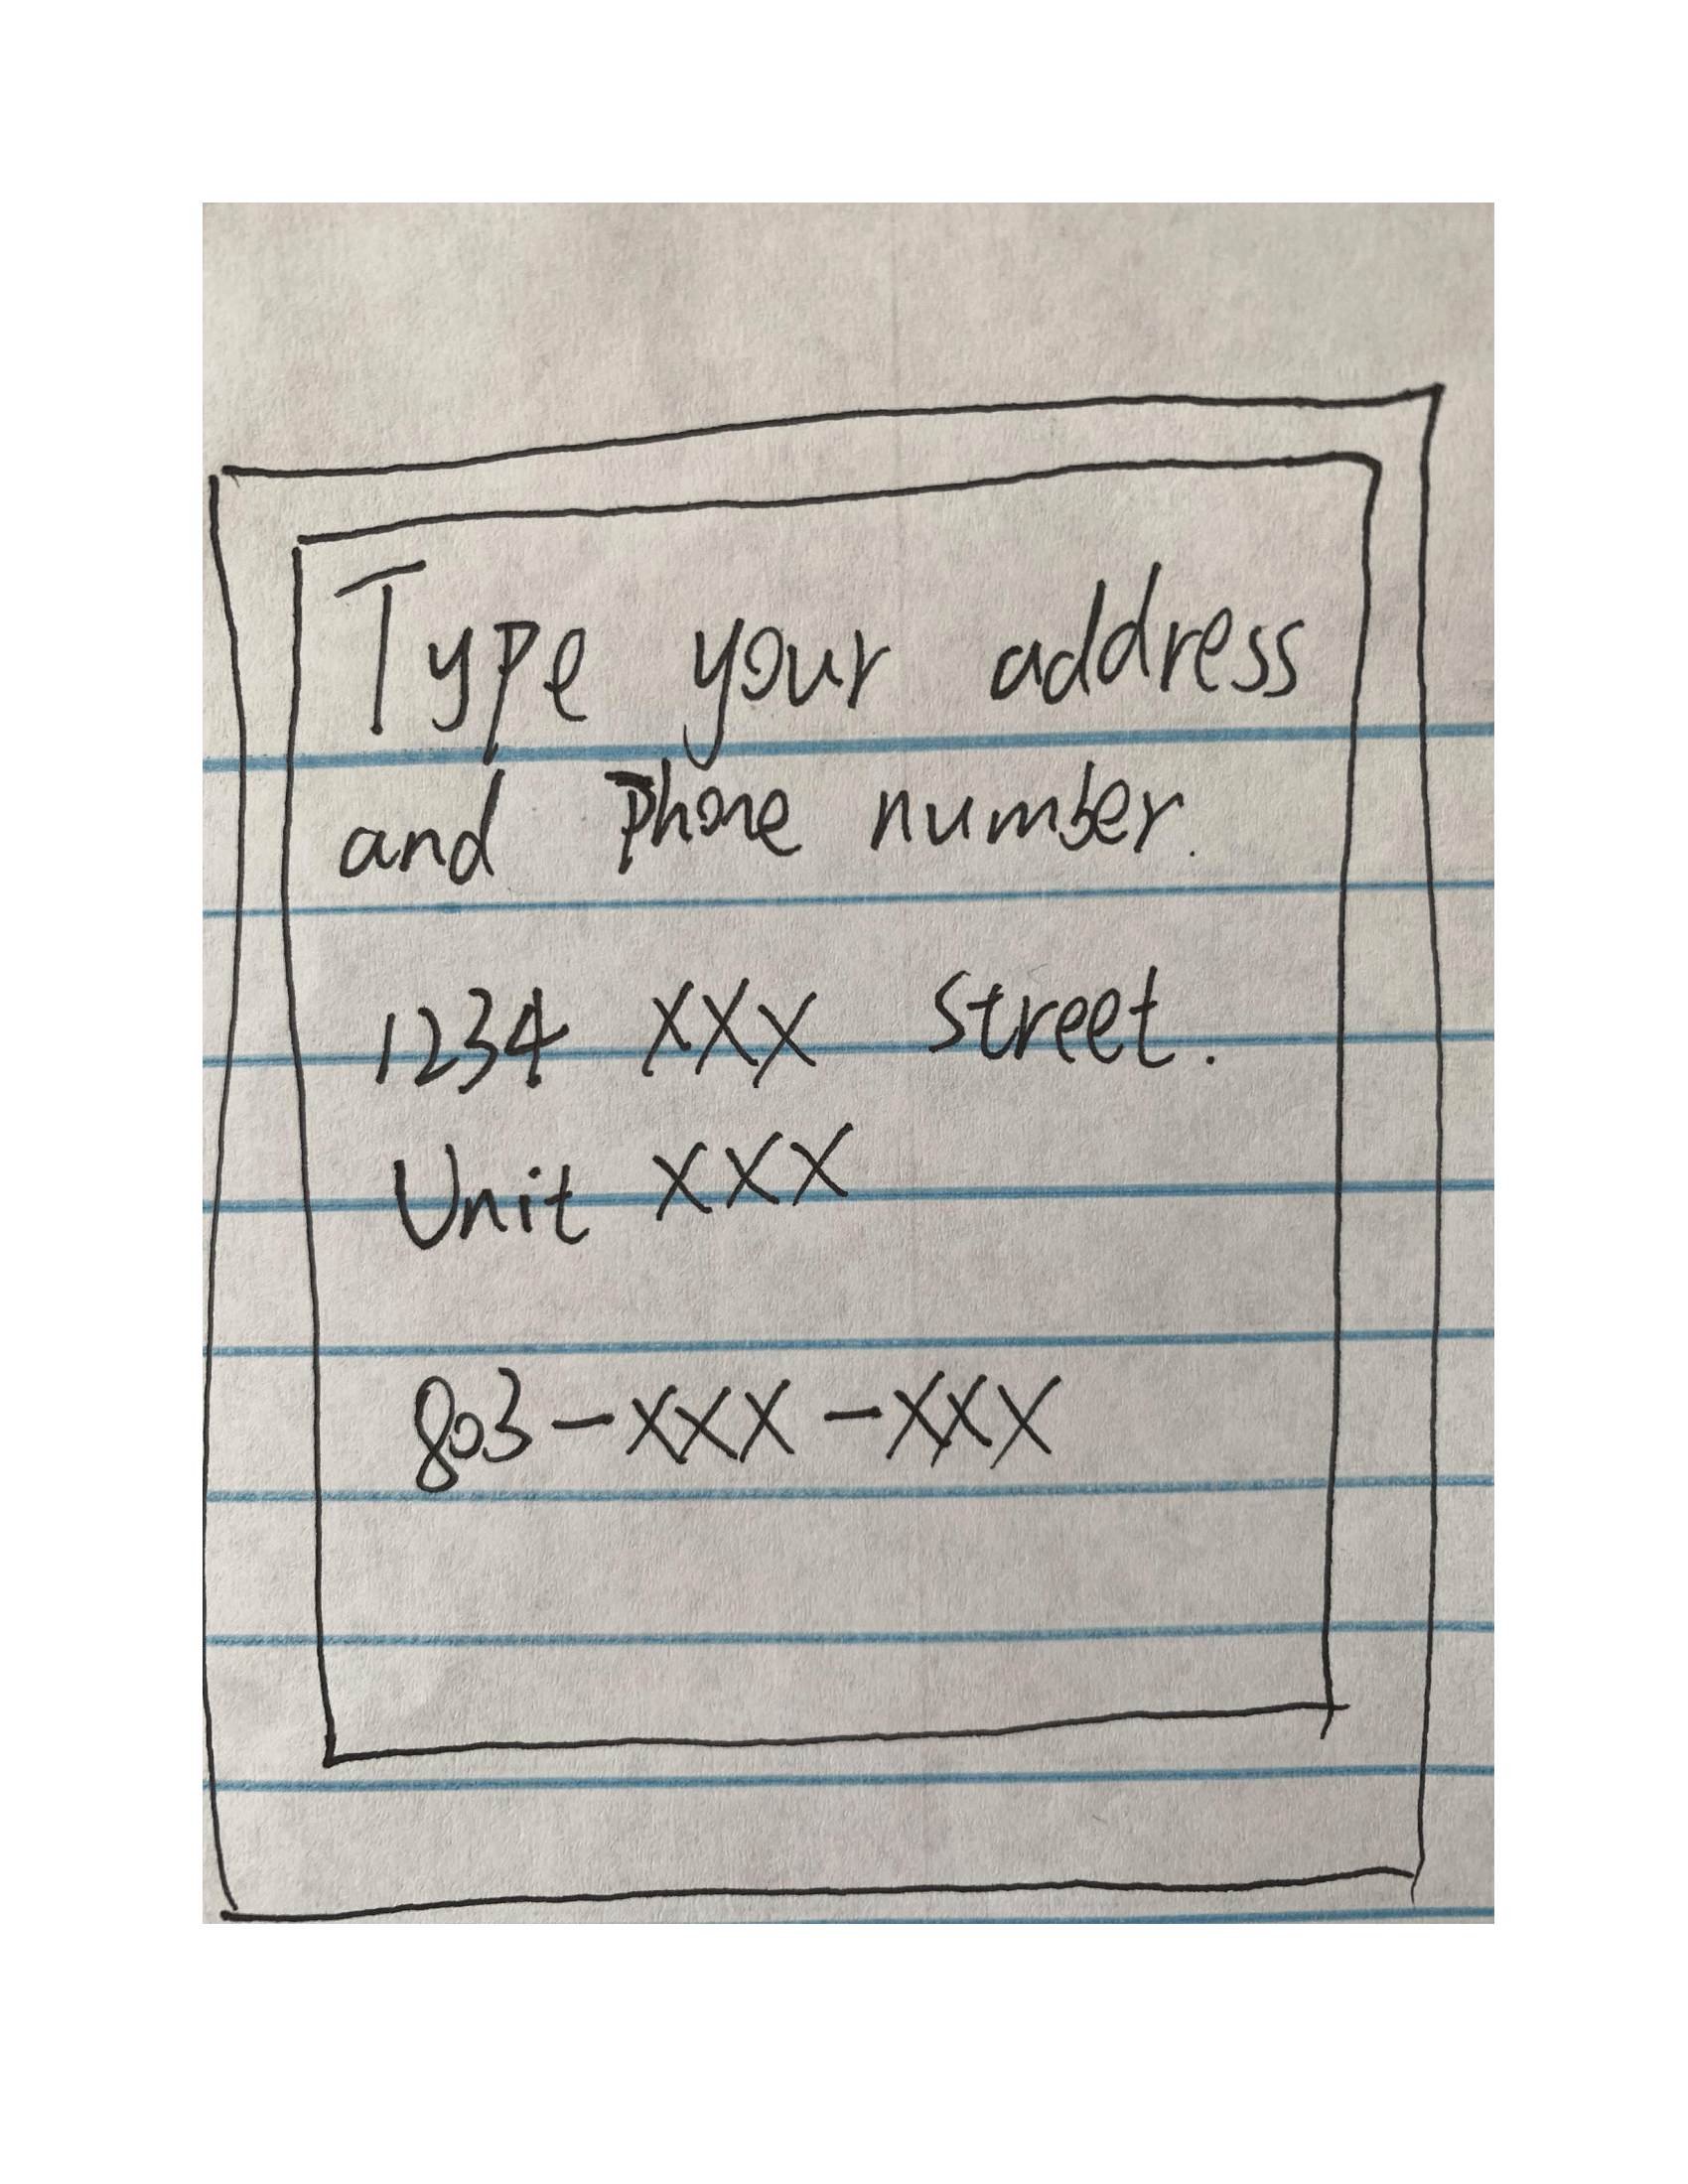 Type your address
and phone number.
1234 XXX Street.
Unit XXX
803-XXX-XXX